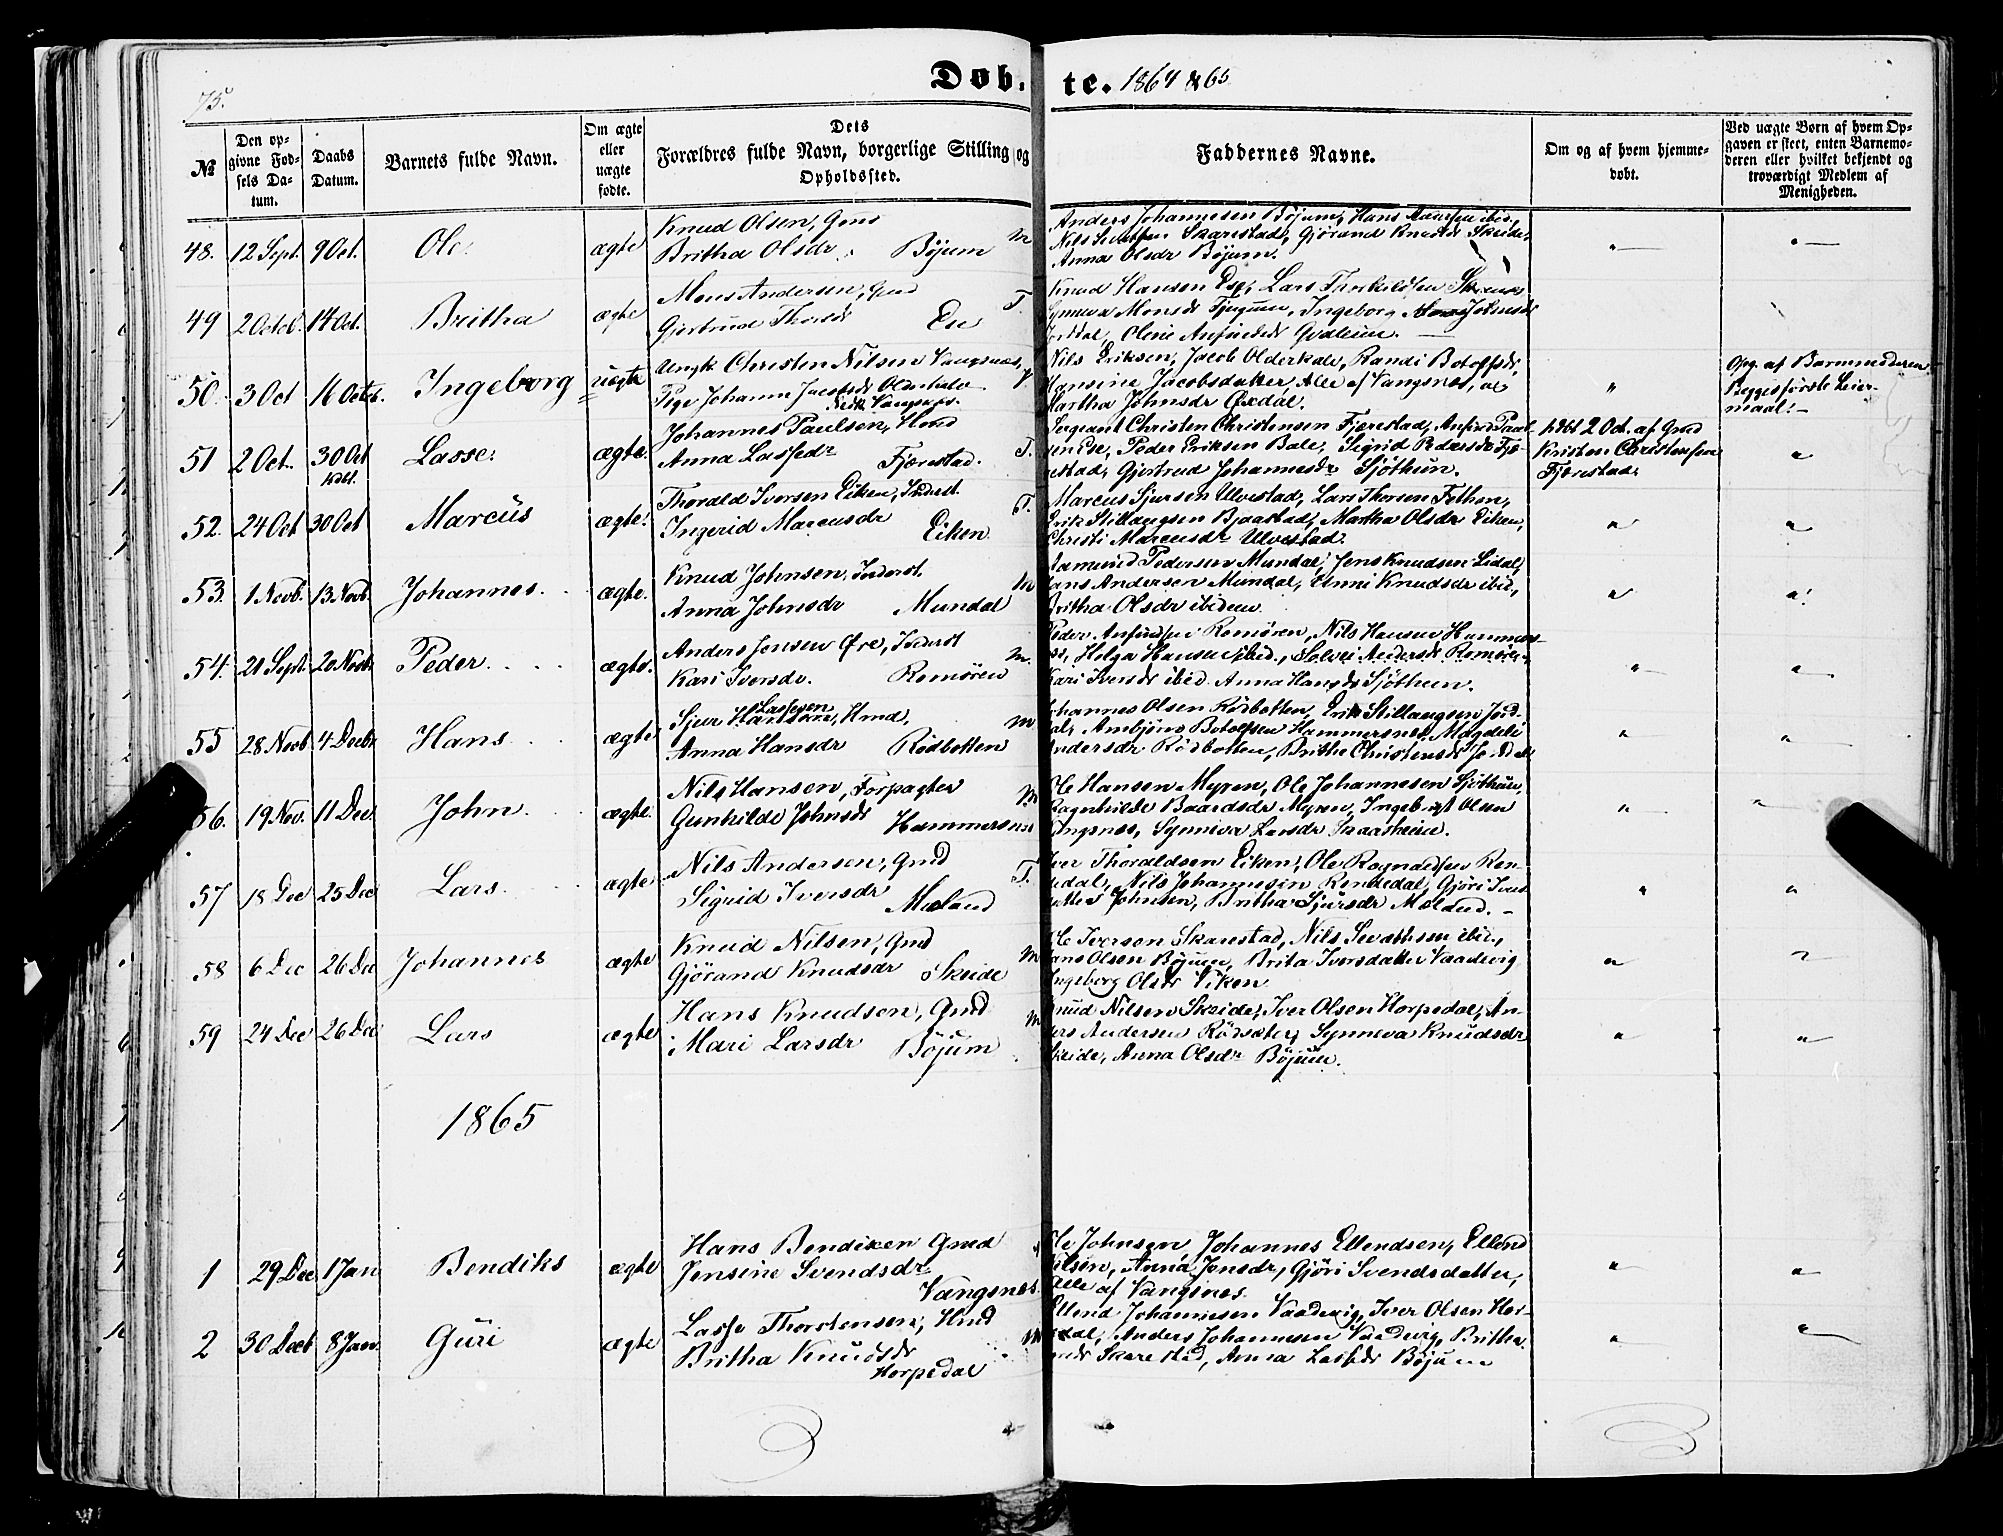 75.
Døb. te. 1864 & 65
№
Den op-
givne Fød-
sels Da-
tum.
Daabs
Datum.
Barnets fulde Navn.
Om ægte
eller
uægte
fødte.
Dets
Forældres fulde Navn, borgerlige Stilling og
Opholdssted.
Faddernes Navne.
Om og af hvem hjemme-
døbt.
Ved uægte Børn af hvem Op-
gaven er skeet, enten Barnemo-
deren eller hvilket bekjendt og
troværdigt Medlem af
Menigheden.
48. 12 Sept. 9 Oct. Ole. ægte
Knud Olsen, Gmd
Britha Olsdr. Böjum M
Anders Johannesen Böjum, Hans ibid.,
Nils Skarestad, Gjørand Knudsdr Skeide,
Anna Olsdr Böjum.
49 2 Octob. 14 Oct. Britha ægte
Mons Andersen, Gmd
Gjertrud Thorsdr Ese T.
Knud Hansen Ese, Lars Thorkildsen
Synneva Monsdr Fjugum, Ingeborg Johnsdr
Oline
50. 3 Oct 16 Octob. Ingeborg uægte
Ungk Christen Nilsen Vangsnæs,
Pige Johanne Jacobsdr Olderkale
Nedr. Vangsnæs. V
Nils Eriksen, Jacob Olderkale, Randi Botolfsdr,
Hansine Jacobsdatter, Alle af Vangsnæs, og
Martha Johnsdr Öxdal.
Opg. af Barnemoderen
Begges første Leier-
maal.
51 2 Oct. 30 Oct Lasse. ægte.
hdbt.
Johannes Paulsen, Hmd
Anna Lassedr Fjærestad. T.
Sergeant Christen Christensen Fjærestad, Anfind
Ese, Peder Eriksen Bale, Sigrid Pedersdr Fjæ-
restad, Gjertrud Johannesdr Sjøthun.
hdbt 2 Oct. af Gmd
Kristen Christensen
Fjærestad.
52. 24 Oct 30 Oct Marcus ægte.
Thorald Iversen Eiken, Inderst.
Ingerid Marcusdr Eiken T.
Marcus Sjursen Ulvestad, Lars Thorsen Fethen,
Erik Stillaugsen Bjaastad, Martha Olsdr Eiken,
Christi Marcusdr Ulvestad.
53. 1 Novb. 13 Novb. Johannes. ægte.
Knud Johnsen, Inderst.
Anna Johnsdr Mundal M
Aamund Pedersen Mundal, Jens Knudsen Lidal,
Hans Andersen Mundal, Anni Knudsdr ibid.,
Britha Olsdr ibidem.
54. 21 Sept. 20 Novb. Peder. ægte.
Anders Jensen Øre, Inderst
Kari Iversdr. Romøren M.
Peder Anfindsen Romøren, Nils Hansen Hammers-
Helga Hansen ibid., Solvei Andersdr Romøren,
Kari Iversdr ibid. Anna Hansdr Sjøthun.
55 28 Novb 4 Decbr Hans. ægte
Lassesen
Sjur Hansen, Hmd,
Anna Hansdr Rødbotten M
Johannes Olsen Rødbotten, Erik Stillaugsen Jord-
dal, Ambjörn Botolfsen Hammersnes, Magdeli
Andersdr Rødbotten, Britha Christensdr Jorddal
56. 19 Nov. 11 Dec John. ægte.
Nils Hansen, Forpagter
Gunhilde Johnsdr Hammersnes M
Ole Hansen Myren, Ole Johannesen Sjøthun,
Ragnhilde Baardsdr Myren, Ingebrigt Olsen
Synneva Larsdr
57 18 Dec 25 Dec Lars. ægte
Nils Andersen, Gmd
Sigrid Iversdr Meland T.
Iver Thoraldsen Eiken, Ole Ragnaldsen Ren-
dedal, Nils Johannesen Rendedal, Gjöri Ivers-
datter Johnsen, Britha Sjursdr
58 6 Dec 26 Dec Johannes ægte
Knud Nilsen, Gmd
Gjørand Knudsdr Skeide M
Ole Iversen Skarestad, Nils ibid.,
Hans Olsen Böjum, Brita Iversdatter Vaadevig,
Ingeborg Olsdr Viken
59 24 Dec 26 Dec Lars ægte
Hans Knudsen, Gmd
Mari Larsdr Böjum M
Knud Nilsen Skeide, Iver Olsen Horpedal, An-
ders Andersen Rødsæter, Synneva Knudsdr
Skeide, Anna Olsdr Böjum.
1865
1 29 Dec 1 Jan Bendiks ægte
Hans Bendiksen Gmd
Jensine Svendsdr
Vangsnes.
Ole Johnsen, Johannes Ellendsen, Ellend
Nilsen, Anna Jonsdr, Gjöri Svendsdatter,
Alle af Vangsnes.
2 30 Decb 8 Jan. Guri ægte
Lasse Thorstensen, Hmd
Britha Knudsdr
Horpedal M
Ellend Johannesen Vaadevig, Iver Olsen Hor-
pedal, Anders Johannesen Vaadevig, Britha
Skarestad, Anna Lassedr Böjum